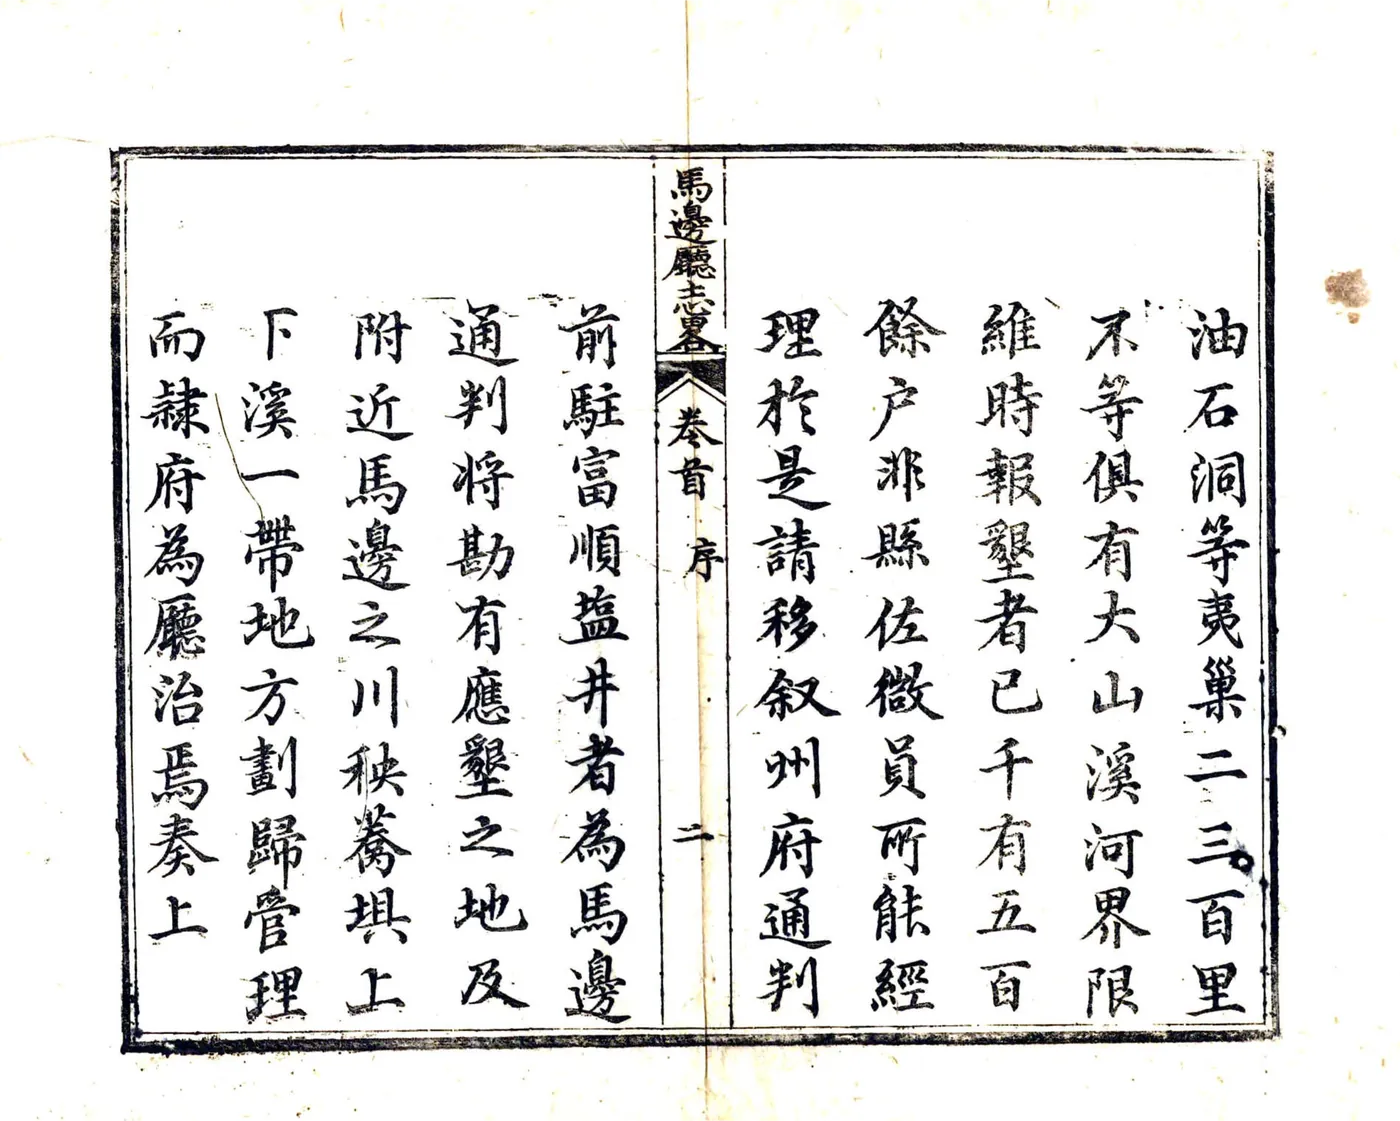 油石洞等夷巢二三百里
不等俱有大山溪河界限
維時報墾者已千有五百
餘户非縣佐微員所能經
理於是請移叙州府通判
馬邊廳志畧
卷首
序
二
前駐富順盐井者為馬邊
通判将勘有應墾之地及
附近馬邊之川秧蕎埧上
下溪一帶地方劃歸管理
而隸府為廳治焉奏上